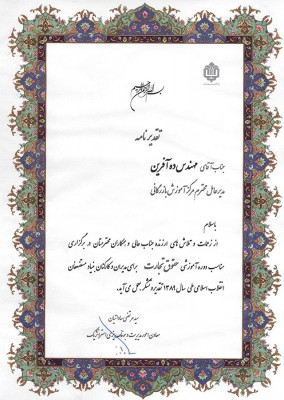 بسم الله الرحمن الرحیم
تقدیر نامه
جناب آقای مهندس ده آفرین
مدیرعامل محترم مرکز آموزش بازرگانی
باسلام
از زحمات و تلاش های ارزنده جناب عالی و همکاران محترمتان در برگزاری
مناسب دوره آموزشی حقوق تجارت برای مدیران و کارکنان بنیاد مستضعفان
انقلاب اسلامی طی سال ۱۳۸۹ تقدیر و تشکر بعمل می‌آید.
سید مرتضی ساداتیان
معاون امور مدیریت و برنامه‌ریزی استراتژیک